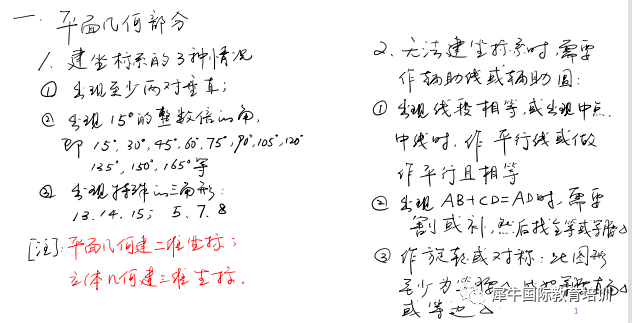 一. 平面几何部分
1. 建坐标系的3种情况
① 出现至少两对垂直;
② 出现15°的整数倍的角,
即 15°, 30°, 45°, 60°, 75°, 90°, 105°, 120°
135°, 150°, 165° 等
③ 出现特殊的三角形:
13. 14. 15; 5、7、8
[注]: 平面几何建二维坐标;
立体几何建三维坐标.
2. 无法建坐标系时,需要
作辅助线或辅助圆:
① 出现线段相等,或出现中点,
中线时,作平行线或做
作平行且相等
② 出现 AB+CD=AD时,需要
割或补,然后找全等或等腰△
③ 作旋转或对称:此图形
至少为等腰△
或等边△
犀牛国际教育培训
1